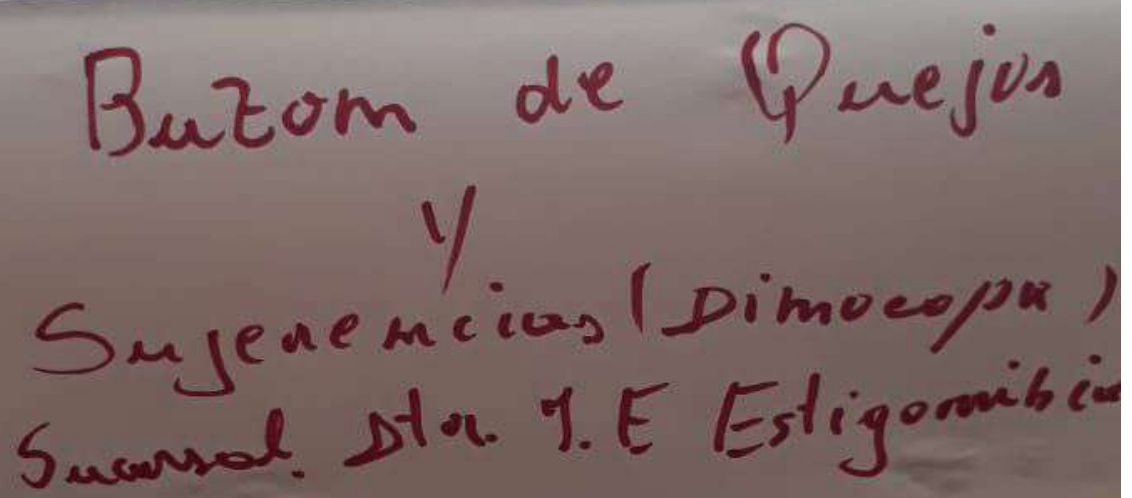 Buzom de Quejas
y
Sujerencias (Dimocopa)
Sucursal. Dtor. J. E Estigarribia